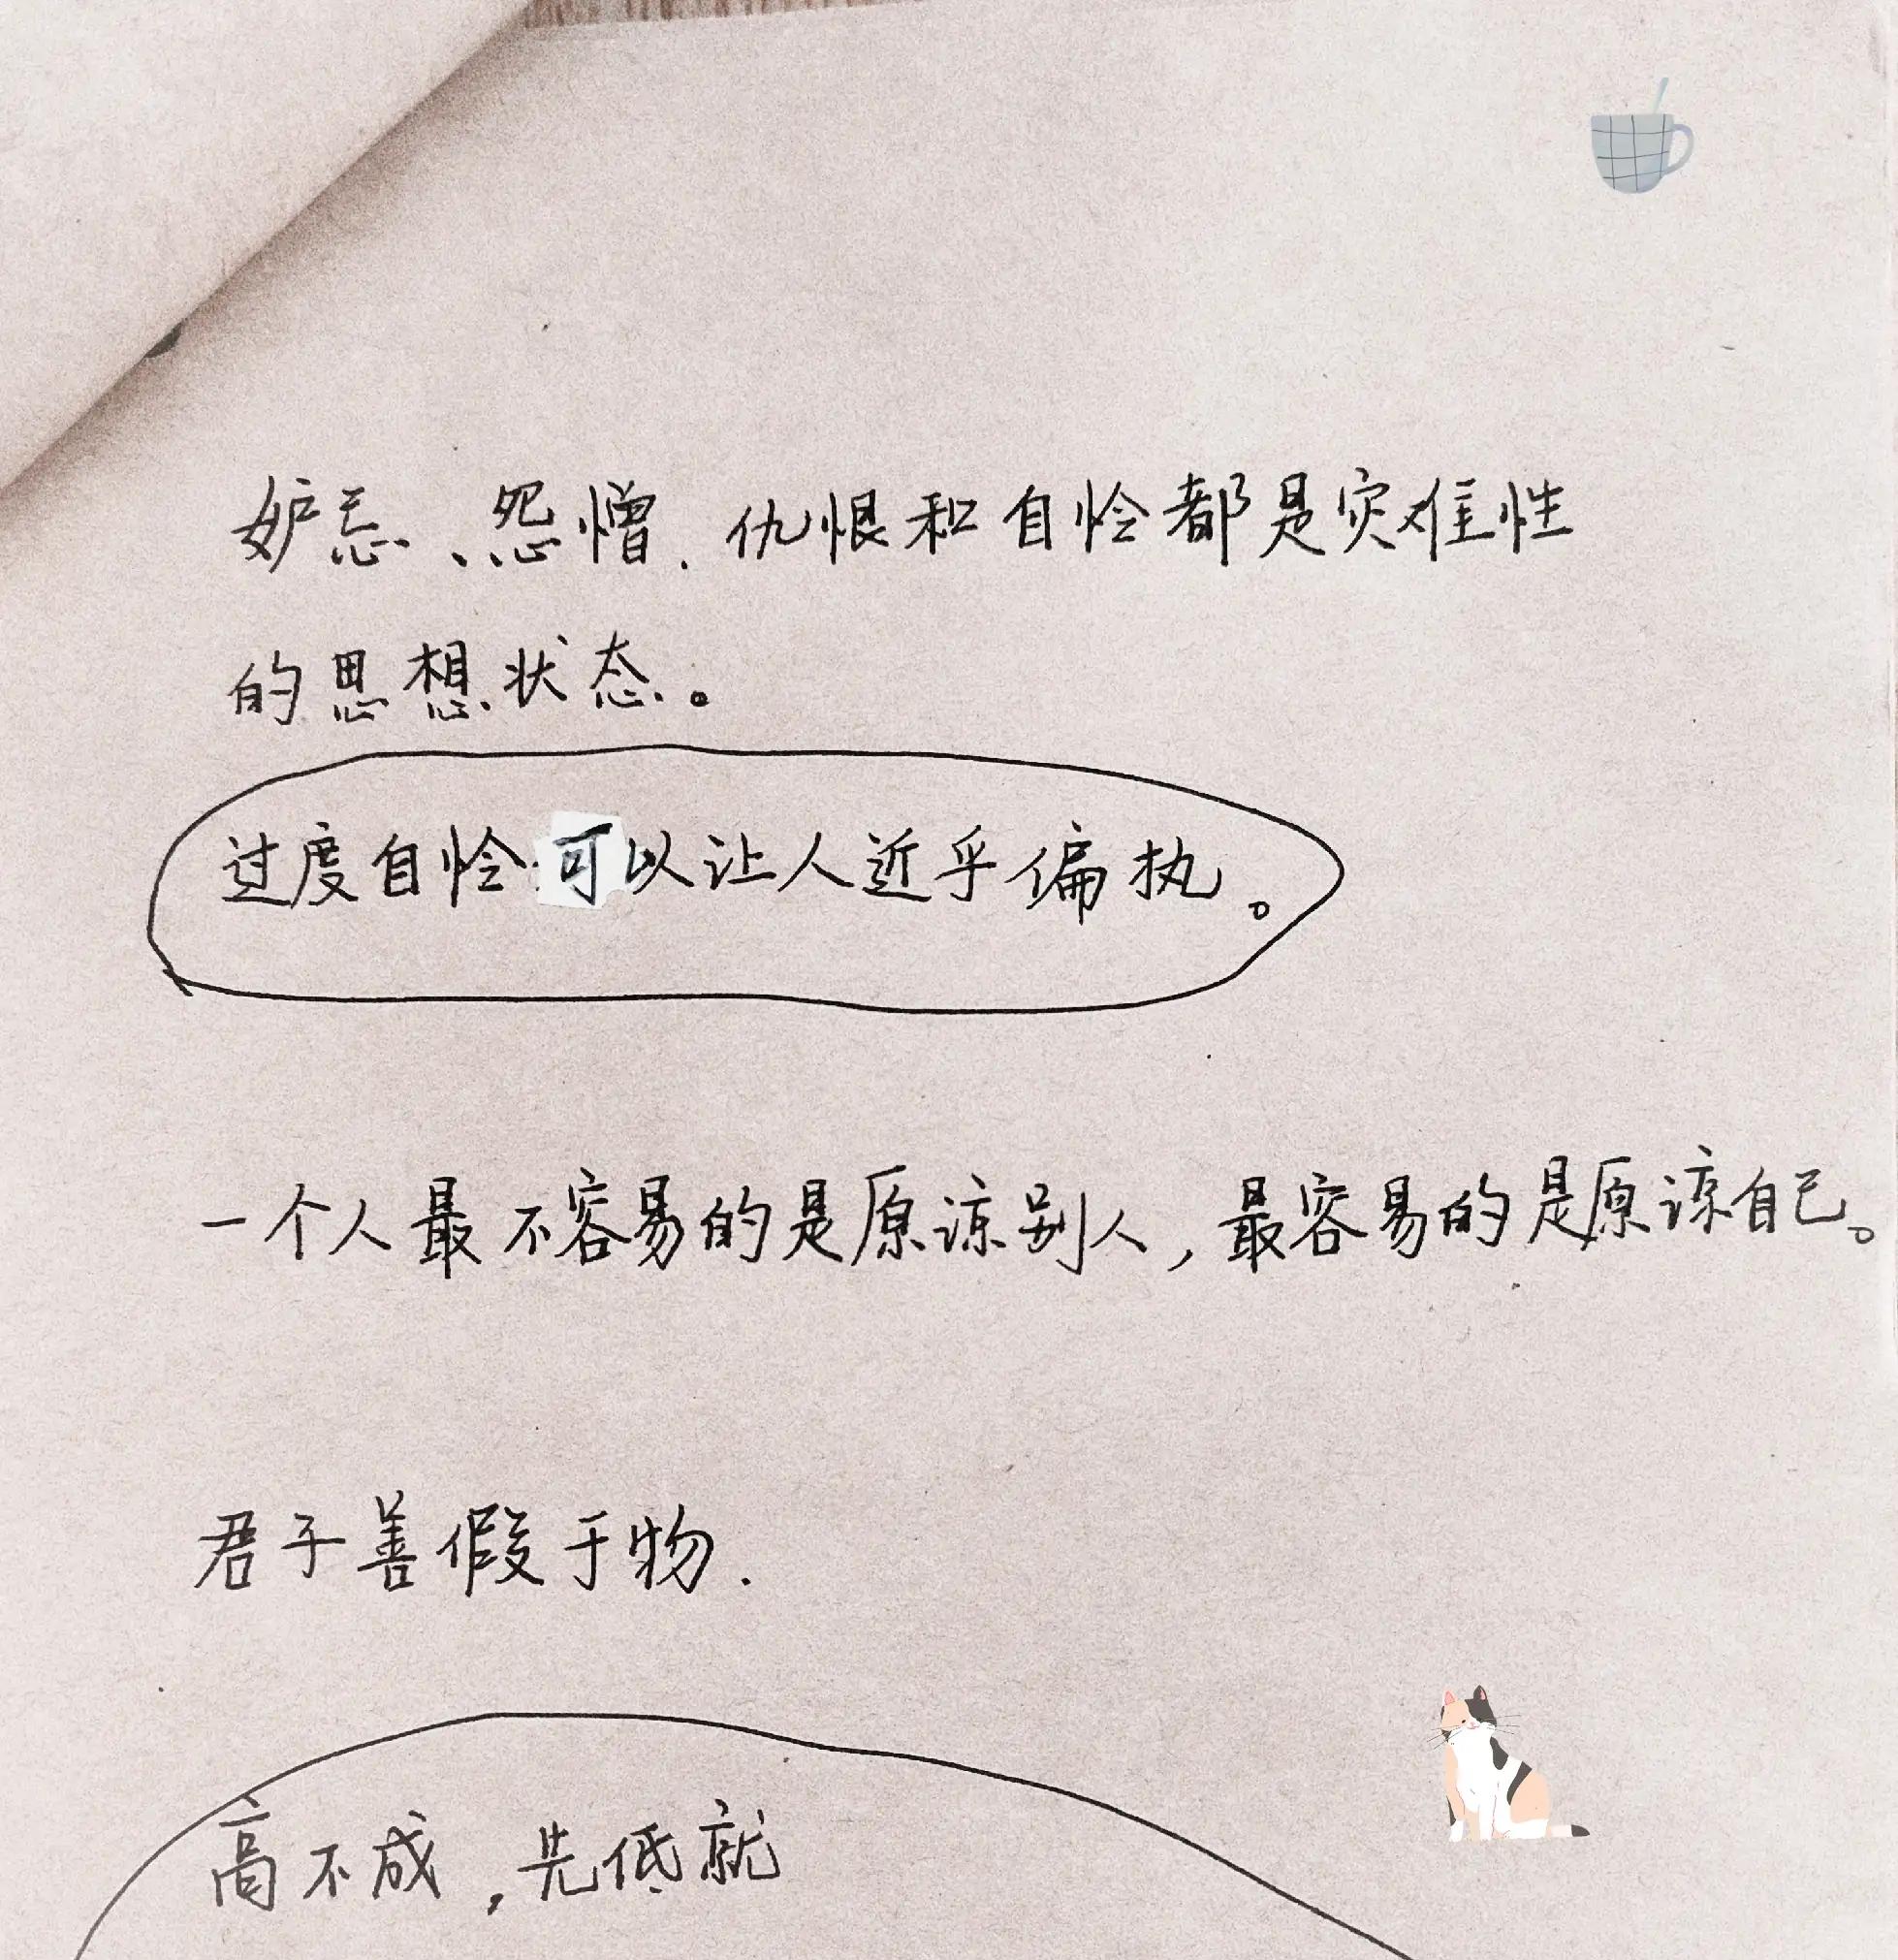 妒忌、怨憎、仇恨和自怜都是灾难性
的思想状态。
过度自怜可以让人近乎偏执。
一个人最不容易的是原谅别人，最容易的是原谅自己。
君子善假于物.
高不成，先低就